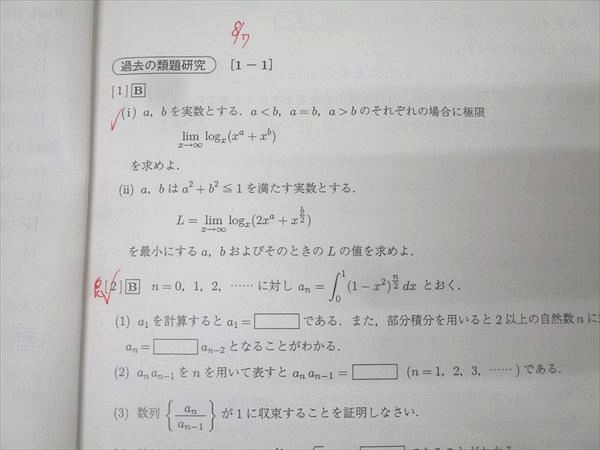 8/7
過去の類題研究 [1-1]
[1] B
(i) a, b を実数とする. a<b, a=b, a>b のそれぞれの場合に極限
lim_{x→∞} log_x(x^a+x^b)
を求めよ.
(ii) a, b は a^2+b^2≦1 を満たす実数とする.
L=lim_{x→∞} log_x(2x^a+x^{b/2})
を最小にする a, b およびそのときの L の値を求めよ.
[2] B n=0, 1, 2, …… に対し a_n=∫_0^1(1-x^2)^{n/2}dx とおく.
(1) a_1 を計算すると a_1=□ である. また, 部分積分を用いると 2 以上の自然数 n に
a_n=□ a_{n-2} となることがわかる.
(2) a_n a_{n-1} を n を用いて表すと a_n a_{n-1}=□ (n=1, 2, 3, ……) である.
(3) 数列 {a_n/a_{n-1}} が 1 に収束することを証明しなさい.